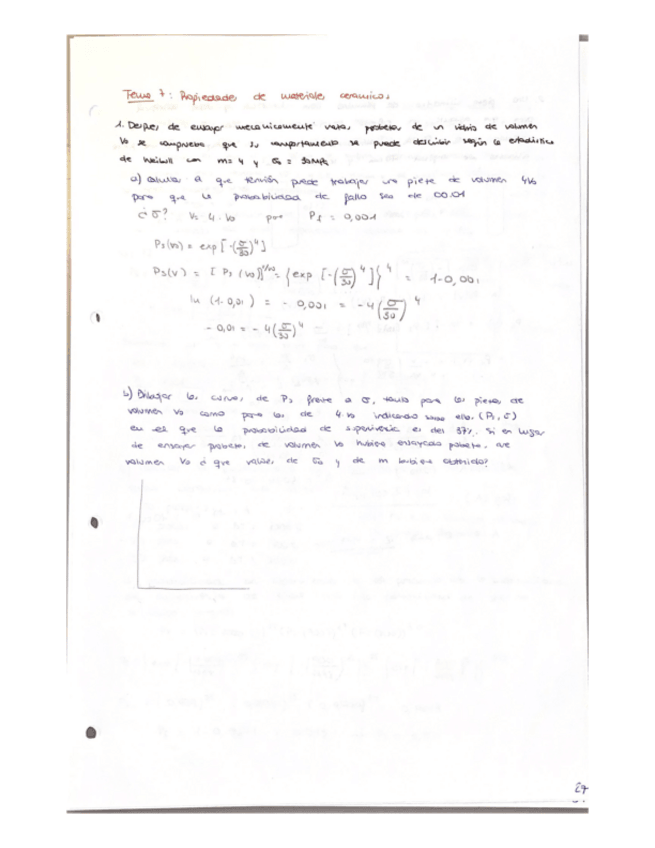 Tema 7: Propiedades de materiales ceramicos
1. Despues de ensayar mecanicamente varias probetas de un vidrio de volumen
Vo se comprueba que su comportamiento se puede describir según la estadistica
de Weibull con m = 4 y σo = 30MPa
a) Calcular a que tensión puede trabajar una pieza de volumen 4Vo
para que la probabilidad de fallo sea de 00.01
¿σ? V = 4·Vo para Pf = 0,001
Ps(vo) = exp[-(σ/30)^4]
Ps(V) = [Ps(Vo)]^V/Vo = {exp[-(σ/30)^4]}^4 = 1-0,001
ln (1-0,01) = - 0,001 = -4(σ/30)^4
- 0,01 = - 4(σ/30)^4
b) Dibujar las curvas de Ps frente a σ, tanto para las piezas de
volumen Vo como para las de 4·Vo indicando ellas (Ps, σ)
en el que la probabilidad de supervivencia es del 37%. Si en lugar
de ensayar probetas de volumen Vo hubiera ensayado probetas de
volumen Vo ¿que valores de σo y de m hubiera obtenido?
27